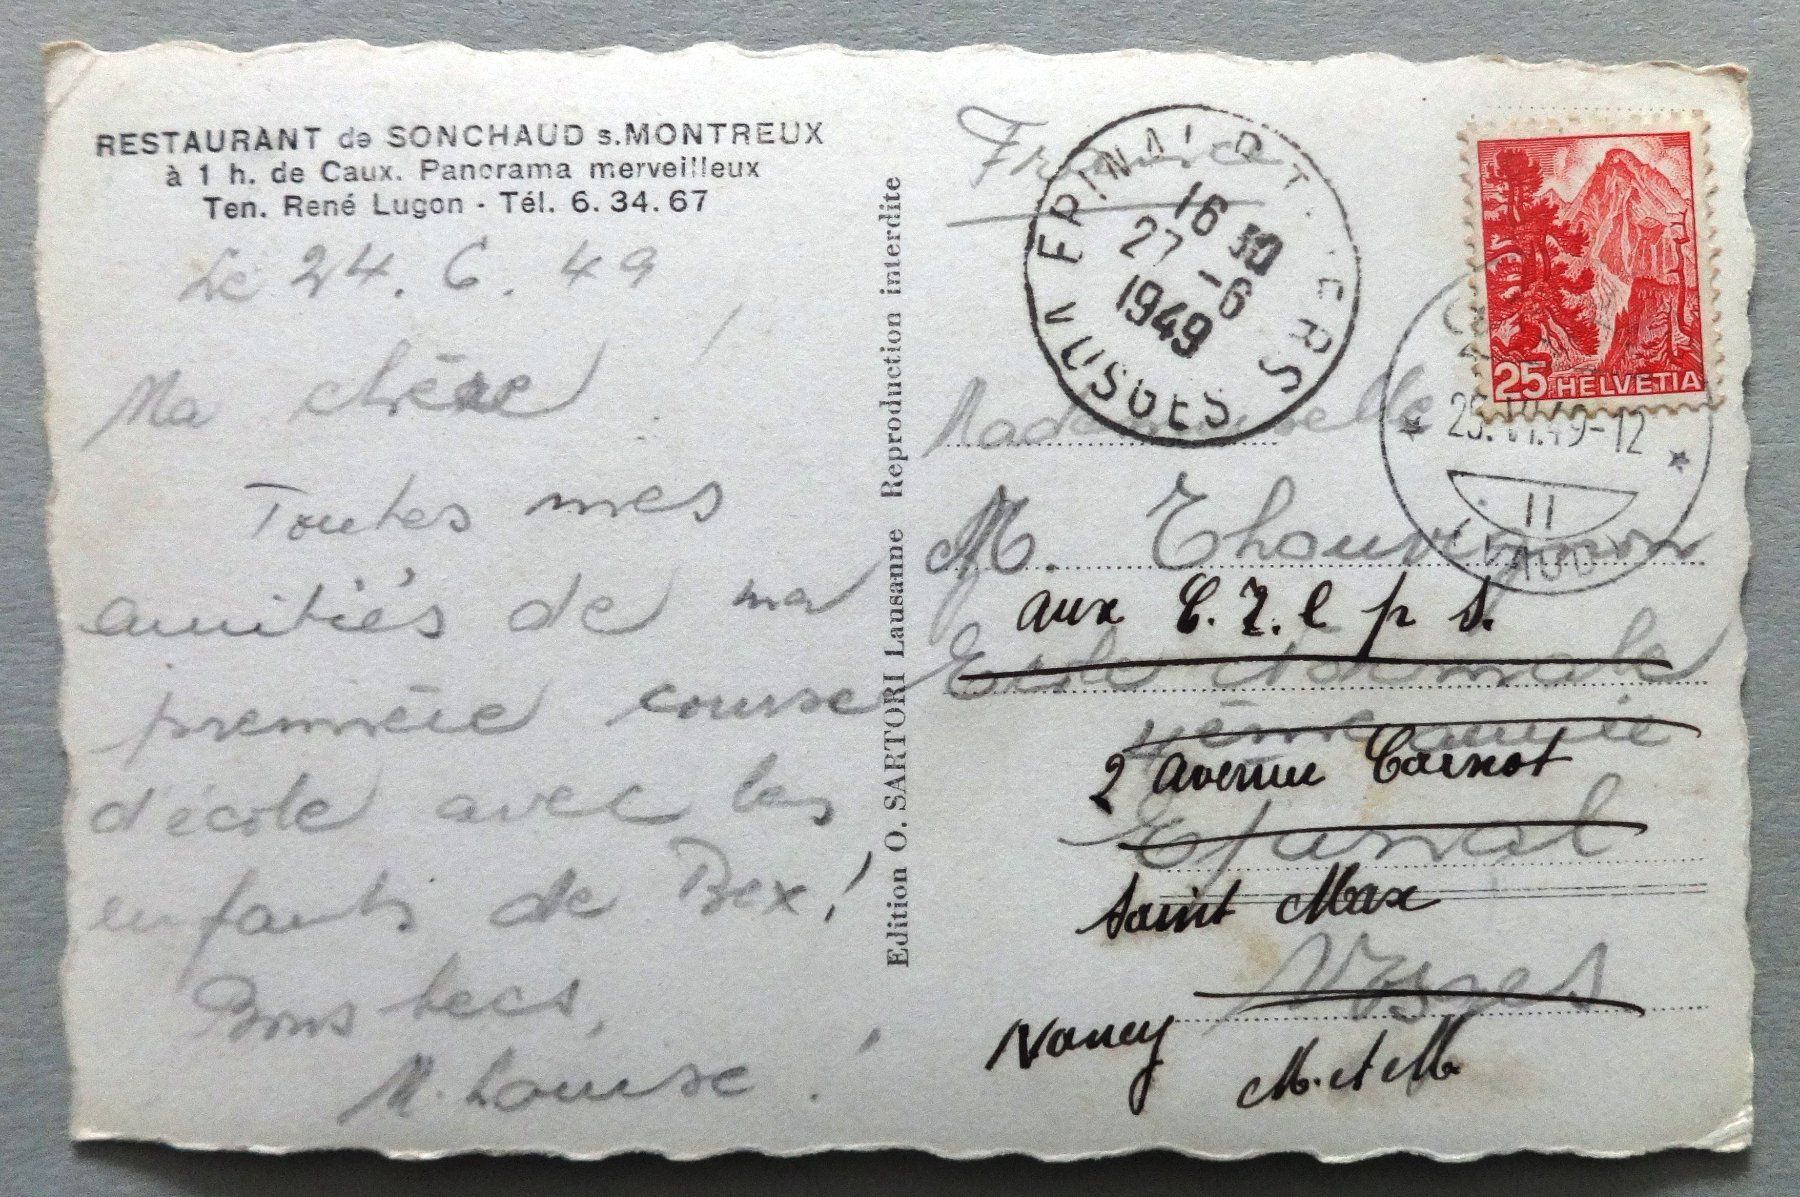 RESTAURANT de SONCHAUD s.MONTREUX
à 1 h. de Caux. Panorama merveilleux
Ten. René Lugon - Tél. 6.34.67
Le 24. 6. 49
Ma chère
Toutes mes
amitiés de ma
première course
d'école avec les
enfants de Bex!
Bons becs,
M. Louise.
Edition O. SARTORI Lausanne Reproduction interdite
France
EPINAL
VOSGES
16 30
27 -6
1949
25 HELVETIA
25.VI.49-12
II
(VAUD)
Mademoiselle
M.
aux
Ecole Normale
4ème année
2 avenue Carnot
Epinal
Saint Max
Vosges
Nancy
M. et M.